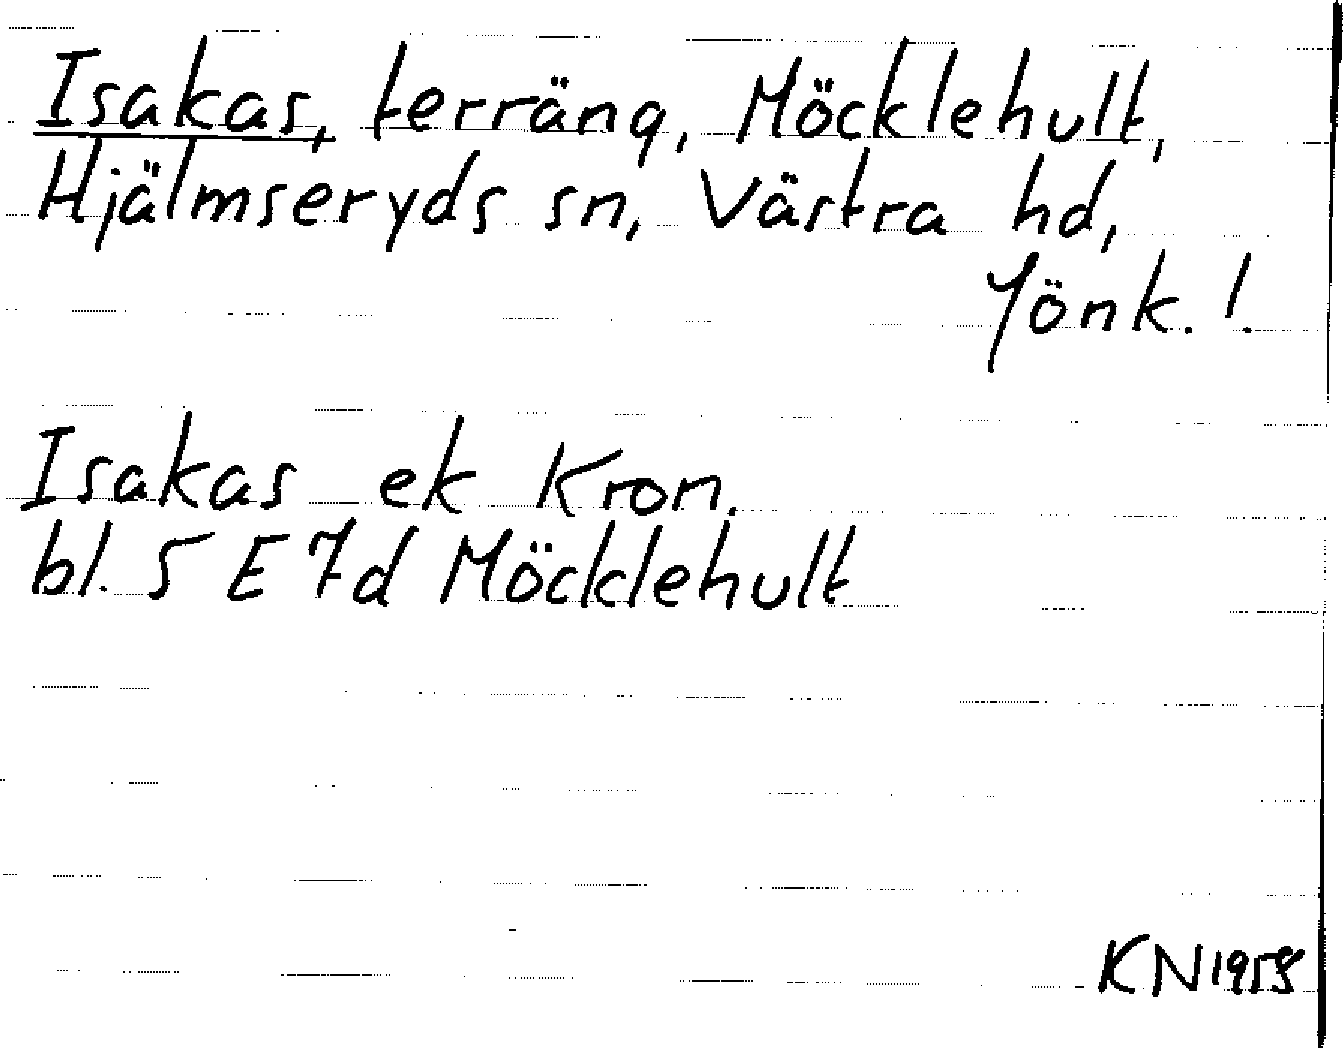 Isakas, terräng, Möcklehult,
Hjälmseryds sn, Västra hd,
Jönk. l.
Isakas ek Kron.
bl. 5 E 7d Möcklehult
KN